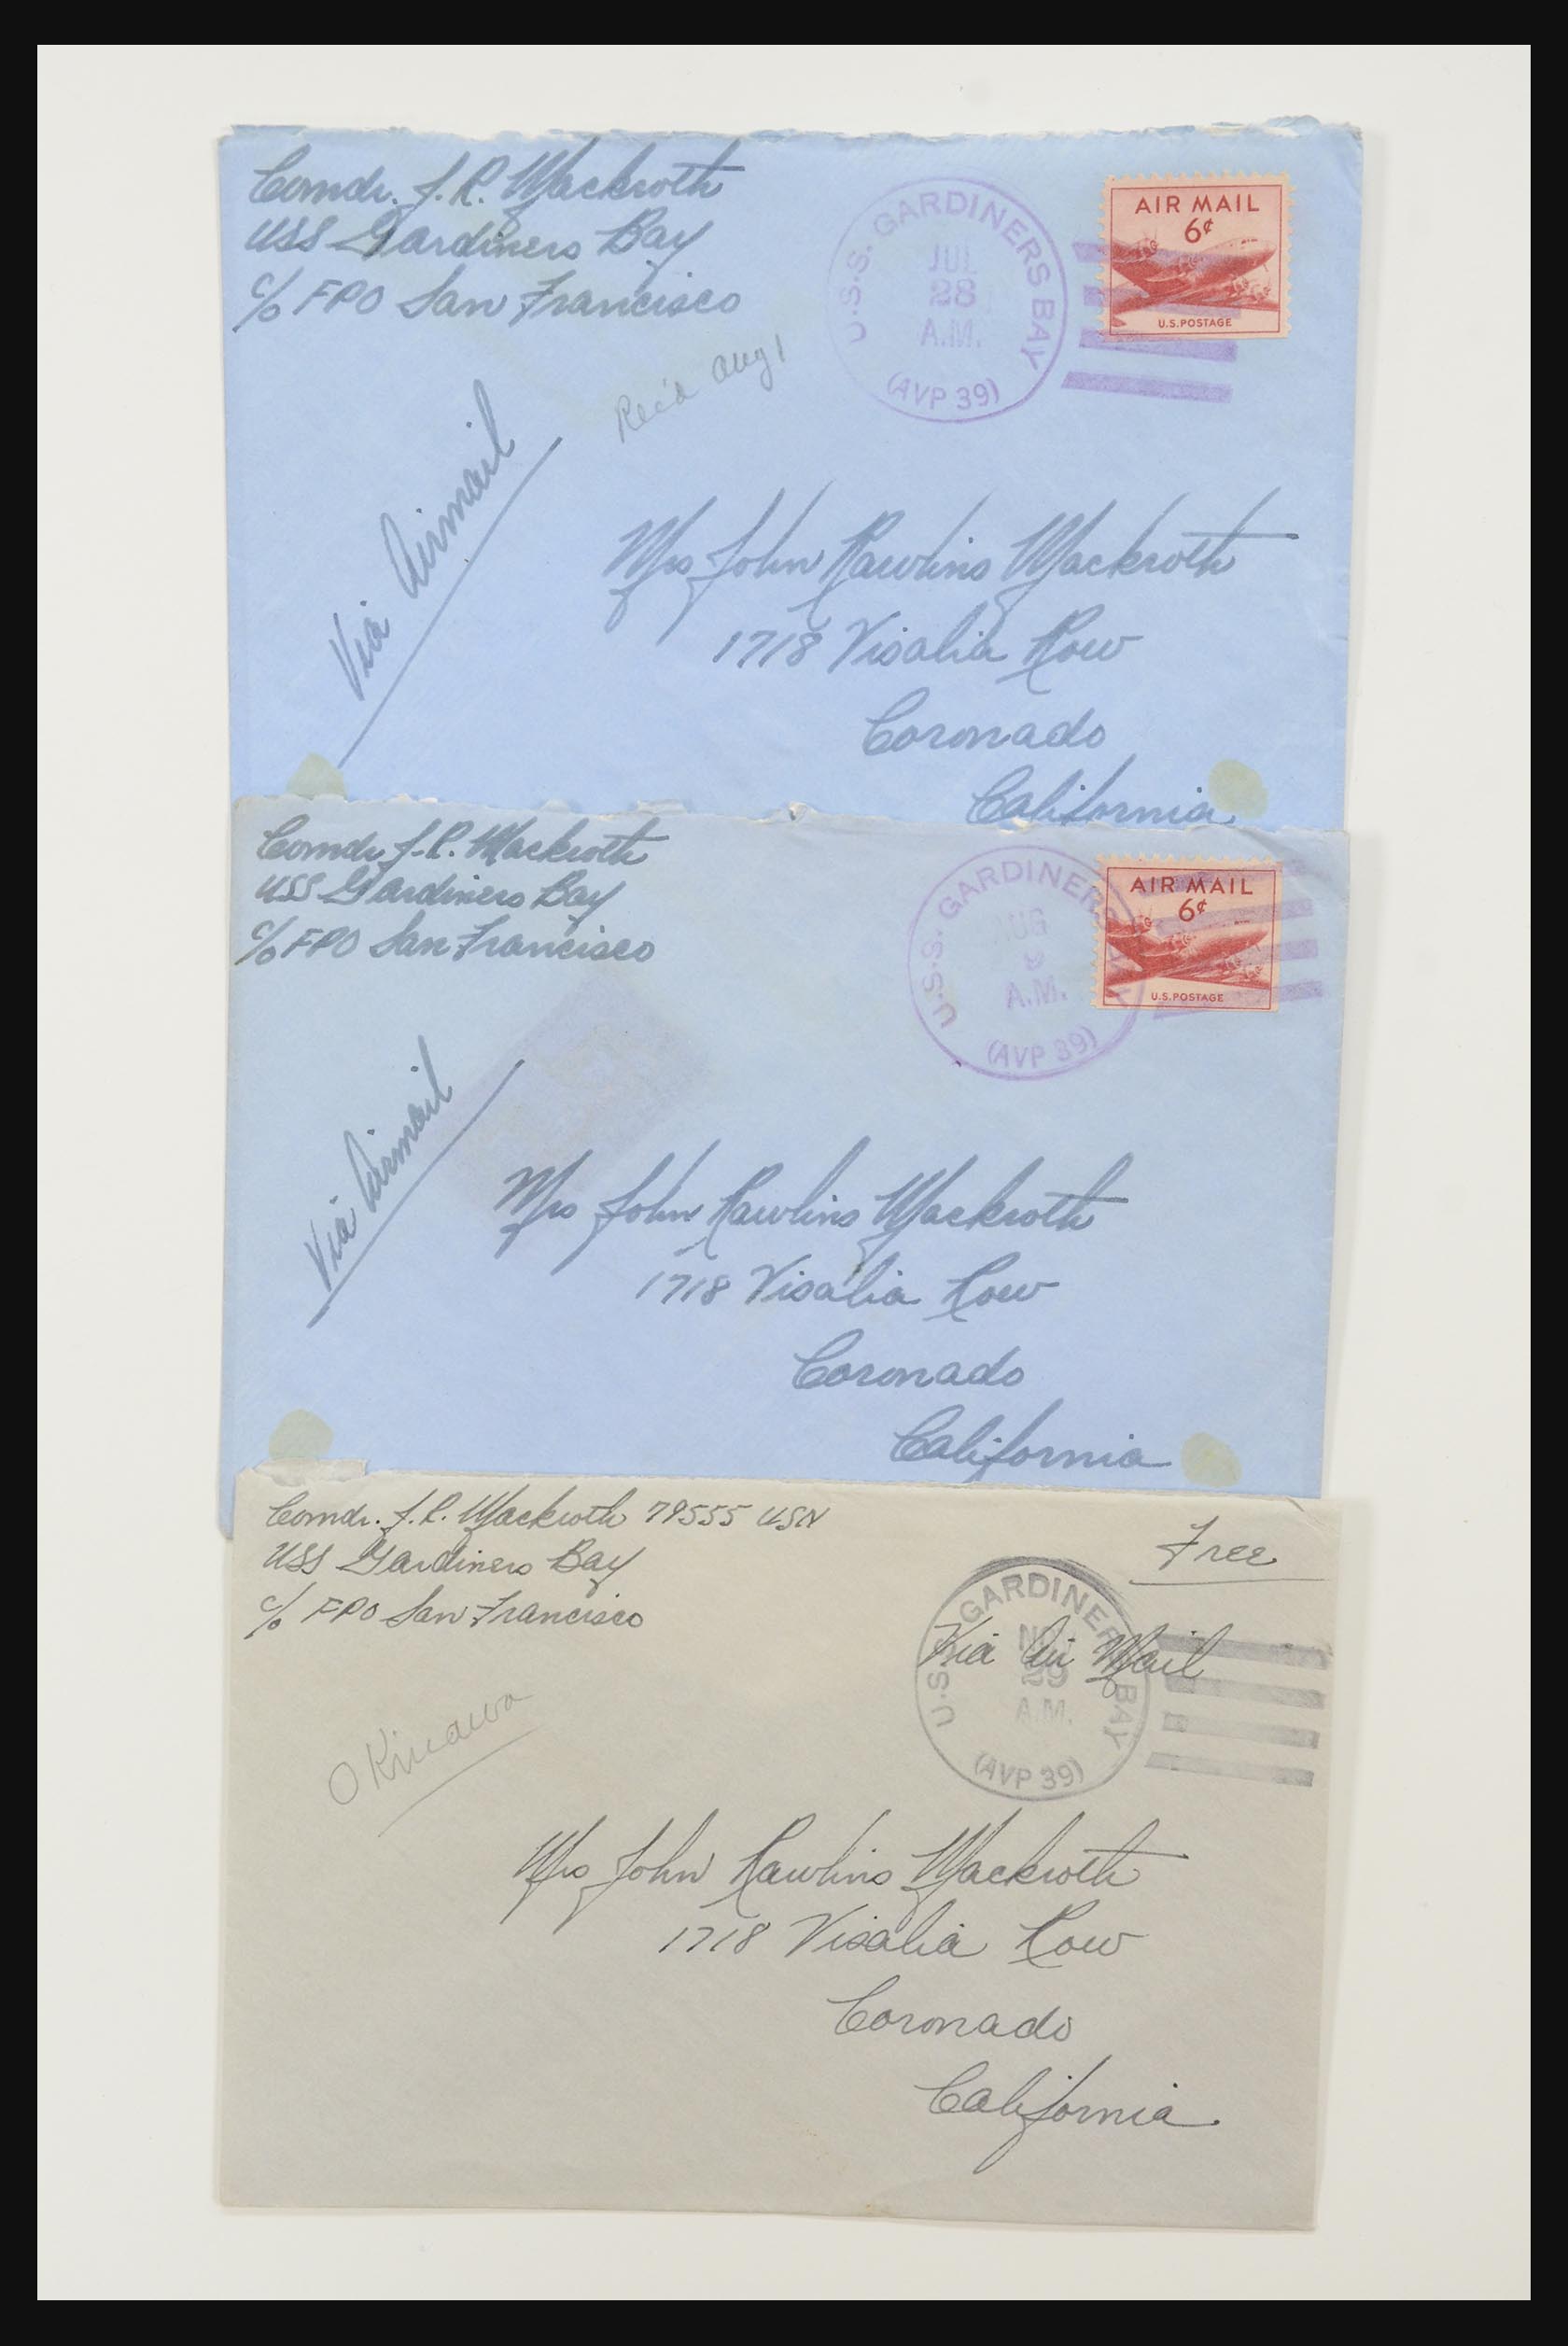 Comdr. J. R. Mackroth
USS Gardiners Bay
c/o FPO San Francisco
U.S.S. GARDINERS BAY
JUL
28
A.M.
(AVP 39)
AIR MAIL
6¢
U.S. POSTAGE
Rec'd Aug 1
Via Airmail
Mrs John Rawlins Mackroth
1718 Visalia Row
Coronado
California
Comdr J. R. Mackroth
USS Gardiners Bay
c/o FPO San Francisco
U.S.S. GARDINERS
A.M.
(AVP 39)
AIR MAIL
6¢
U.S. POSTAGE
Via Airmail
Mrs John Rawlins Mackroth
1718 Visalia Row
Coronado
California
Comdr. J. R. Mackroth 79555 USN
USS Gardiners Bay
c/o FPO San Francisco
Free
GARDINERS BAY
29
A.M.
(AVP 39)
Via Air Mail
Okinawa
Mrs John Rawlins Mackroth
1718 Visalia Row
Coronado
California.